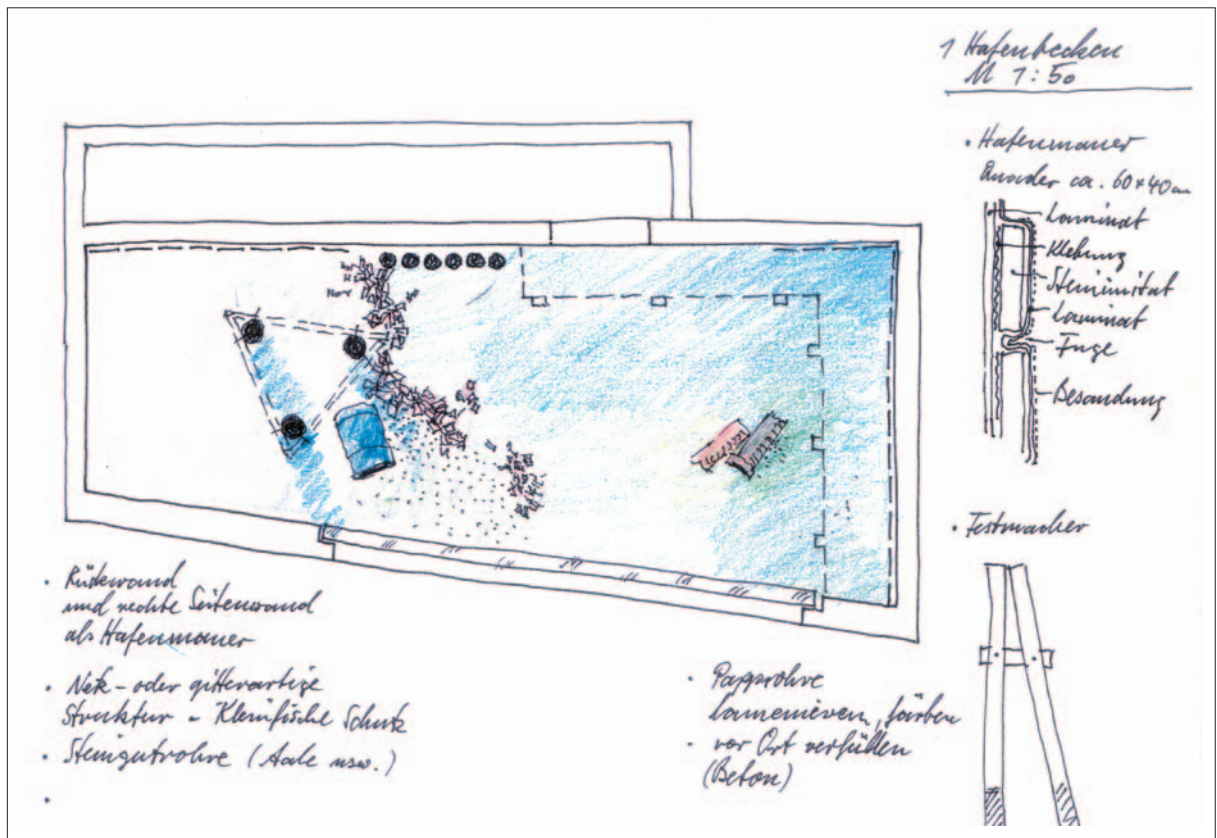 1 Hafenbecken
M 1:50
• Hafenmauer
Quader ca. 60x40cm
Laminat
Klebung
Steinimitat
Laminat
Fuge
Besandung
• Festmacher
• Rückwand
und rechte Seitenwand
als Hafenmauer
• Netz- oder gitterartige
Struktur - Kleinfische Schutz
• Steingutrohre (Aale usw.)
•
• Papprohre
lamenieren, färben
• vor Ort verfüllen
(Beton)